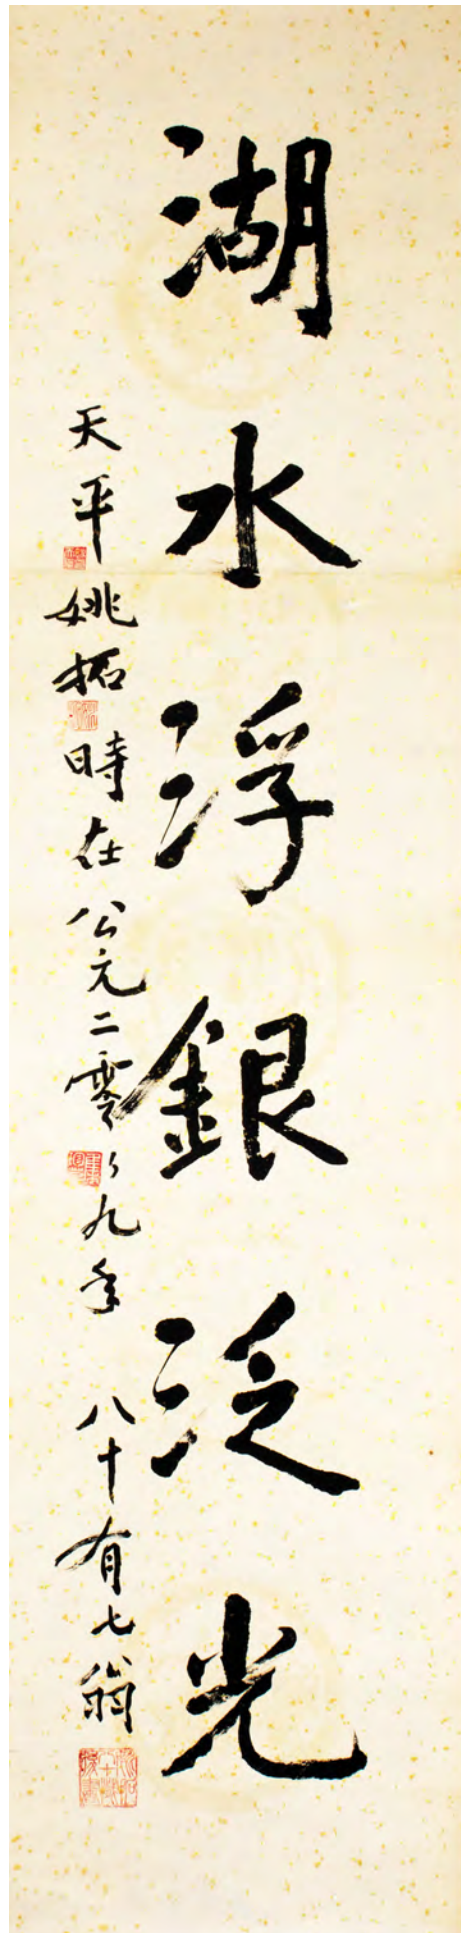 湖水浮銀泛光
天平姚拓時在公元二零〻九年八十有七翁